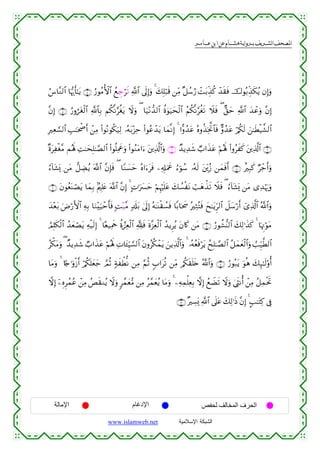 المصحف الشريف برواية هشام عن ابن عامر
وَإِن يُكَذِّبُوكَ فَقَدْ كُذِّبَتْ رُسُلٌ مِّن قَبْلِكَ ۚ وَإِلَى ٱللَّهِ تَرْجِعُ ٱلْأُمُورُ ۝ يَٰٓأَيُّهَا ٱلنَّاسُ
إِنَّ وَعْدَ ٱللَّهِ حَقٌّ ۖ فَلَا تَغُرَّنَّكُمُ ٱلْحَيَوٰةُ ٱلدُّنْيَا ۖ وَلَا يَغُرَّنَّكُم بِٱللَّهِ ٱلْغَرُورُ ۝ إِنَّ
ٱلشَّيْطَٰنَ لَكُمْ عَدُوٌّ فَٱتَّخِذُوهُ عَدُوًّا ۚ إِنَّمَا يَدْعُوا۟ حِزْبَهُۥ لِيَكُونُوا۟ مِنْ أَصْحَٰبِ ٱلسَّعِيرِ
۝ ٱلَّذِينَ كَفَرُوا۟ لَهُمْ عَذَابٌ شَدِيدٌ ۖ وَٱلَّذِينَ ءَامَنُوا۟ وَعَمِلُوا۟ ٱلصَّٰلِحَٰتِ لَهُم مَّغْفِرَةٌ
وَأَجْرٌ كَبِيرٌ ۝ أَفَمَن زُيِّنَ لَهُۥ سُوٓءُ عَمَلِهِۦ فَرَءَاهُ حَسَنًا ۖ فَإِنَّ ٱللَّهَ يُضِلُّ مَن يَشَآءُ
وَيَهْدِى مَن يَشَآءُ ۖ فَلَا تَذْهَبْ نَفْسُكَ عَلَيْهِمْ حَسَرَٰتٍ ۚ إِنَّ ٱللَّهَ عَلِيمٌۢ بِمَا يَصْنَعُونَ
۝ وَٱللَّهُ ٱلَّذِىٓ أَرْسَلَ ٱلرِّيَٰحَ فَتُثِيرُ سَحَابًا فَسُقْنَٰهُ إِلَىٰ بَلَدٍ مَّيْتٍ فَأَحْيَيْنَا بِهِ ٱلْأَرْضَ بَعْدَ
مَوْتِهَا ۚ كَذَٰلِكَ ٱلنُّشُورُ ۝ مَن كَانَ يُرِيدُ ٱلْعِزَّةَ فَلِلَّهِ ٱلْعِزَّةُ جَمِيعًا ۚ إِلَيْهِ يَصْعَدُ ٱلْكَلِمُ
ٱلطَّيِّبُ وَٱلْعَمَلُ ٱلصَّٰلِحُ يَرْفَعُهُۥ ۚ وَٱلَّذِينَ يَمْكُرُونَ ٱلسَّيِّـَٔاتِ لَهُمْ عَذَابٌ شَدِيدٌ ۖ وَمَكْرُ
أُو۟لَٰٓئِكَ هُوَ يَبُورُ ۝ وَٱللَّهُ خَلَقَكُم مِّن تُرَابٍ ثُمَّ مِن نُّطْفَةٍ ثُمَّ جَعَلَكُمْ أَزْوَٰجًا ۚ وَمَا
تَحْمِلُ مِنْ أُنثَىٰ وَلَا تَضَعُ إِلَّا بِعِلْمِهِۦ ۚ وَمَا يُعَمَّرُ مِن مُّعَمَّرٍ وَلَا يُنقَصُ مِنْ عُمُرِهِۦٓ إِلَّا
فِى كِتَٰبٍ ۚ إِنَّ ذَٰلِكَ عَلَى ٱللَّهِ يَسِيرٌ ۝
الحرف المخالف لحفص الإدغام الإمالة
الشبكة الإسلامية
www.islamweb.net